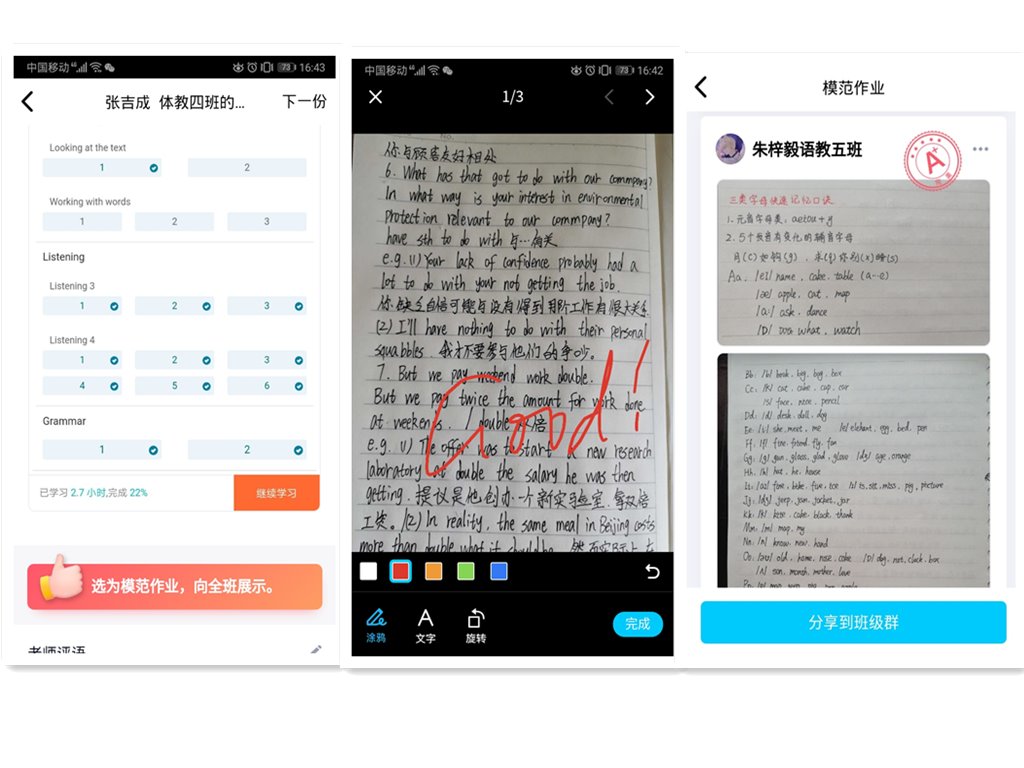 中国移动 4G 73 16:43
张吉成 体教四班的... 下一份
Looking at the text
1 2
Working with words
1 2 3
Listening
Listening 3
1 2 3
Listening 4
1 2 3
4 5 6
Grammar
1 2
已学习 2.7 小时,完成 22% 继续学习
选为模范作业，向全班展示。
老师评语
中国移动 4G 73 16:42
1/3
你与顾客友好相处
6. What has that got to do with our commpany?
In what way is your interest in environmental
protection relevant to our commpany?
have sth to do with 与…有关
e.g. (1) Your lack of confidence probably had a
lot to do with your not getting the job.
你缺乏自信可能与没有得到那份工作有很大关系
(2) I'll have nothing to do with their personal
squabbles. 我才不要参与他们的争吵。
7. But we pay weekend work double.
But we pay twice the amount for work done
at weekends. / double
Good!
e.g. (1) The offer was to start a new research
laboratory at double the salary he was then
getting. 提议是他创办一个新实验室，拿双倍
工资。(2) In reality, the same meal in Beijing costs
more than double what it should be.
涂鸦 文字 旋转 完成
模范作业
朱梓毅语教五班
A+
三类字母快速记忆口诀
1. 元音字母类：aeiou + y
2. 5个发音有变化的辅音字母
月(c)如钩(g)，
Aa. /eɪ/ name, cake, table (a-e)
/æ/ apple, cat, map
/a:/ ask, dance
/ɒ/ what, watch
Bb: /b/ book, big, bag, box
Cc: /k/ cat, cake, cap, car
/s/ face, nice, pencil
Dd: /d/ desk, doll, dog
Ee: /i:/ she, meet, me /e/ elephant, egg, bed, pen
Ff: /f/ fine, friend, fly, fan
Gg: /g/ gun, glass, glad, glove /dʒ/ age, orange
Hh: /h/ hat, he, house
Ii: /aɪ/ fine, bike, five, ice /ɪ/ is, sit, miss, pig, picture
Jj: /dʒ/ jeep, jam, jacket, jar
Kk: /k/ kite, cake, black, thank
Mm: /m/ map, my
Nn: /n/ know, new, hand
Oo: /əʊ/ old, home, nose, coke /ɒ/ dog, not, clock, box
/ʌ/ son, month, mother, love
分享到班级群